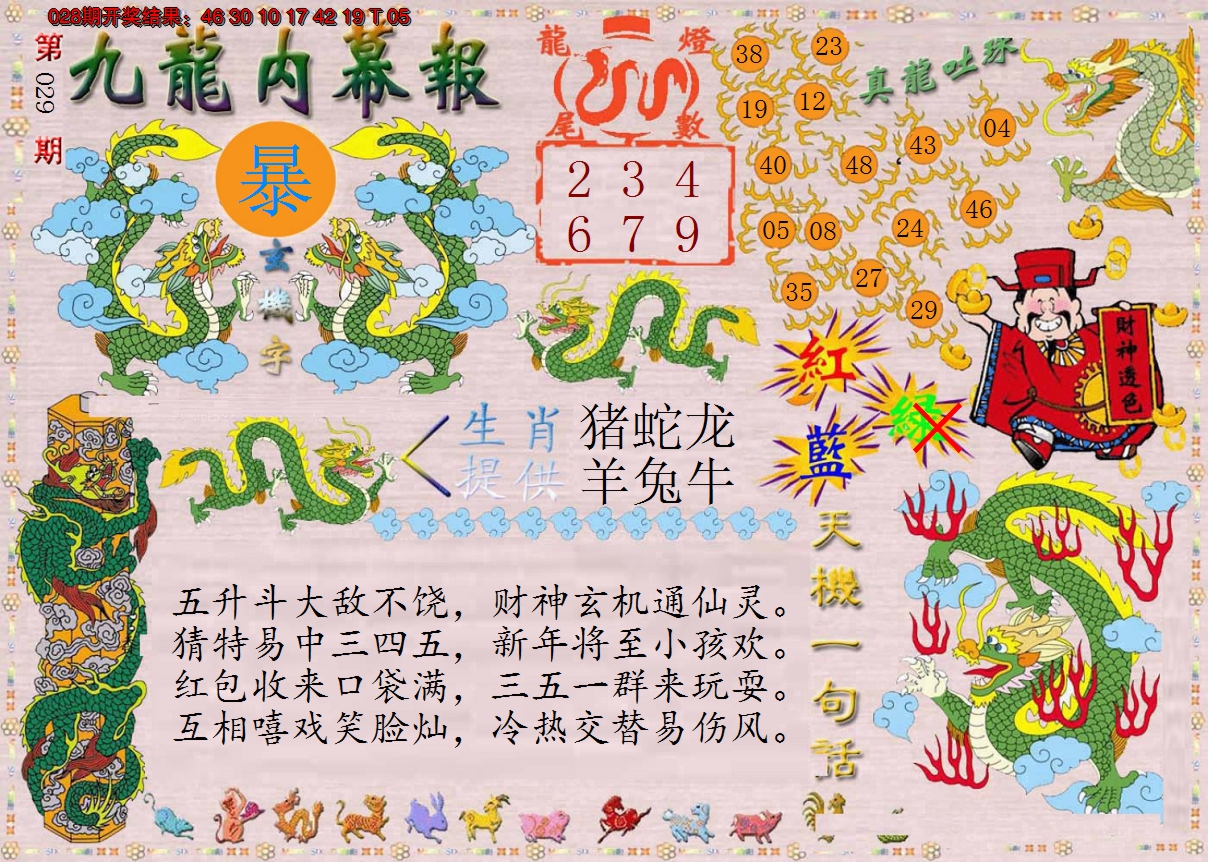 028期开奖结果：46 30 10 17 42 19 T 05
第029期
九龍内幕報
暴
玄機字
龍燈
尾數
2 3 4
6 7 9
真龍吐珠
38 23
19 12
43 04
40 48
46
05 08 24
27
35
29
財神透色
紅
綠
藍
生肖提供
猪蛇龙
羊兔牛
天機一句話
五升斗大敌不饶，财神玄机通仙灵。
猜特易中三四五，新年将至小孩欢。
红包收来口袋满，三五一群来玩耍。
互相嘻戏笑脸灿，冷热交替易伤风。